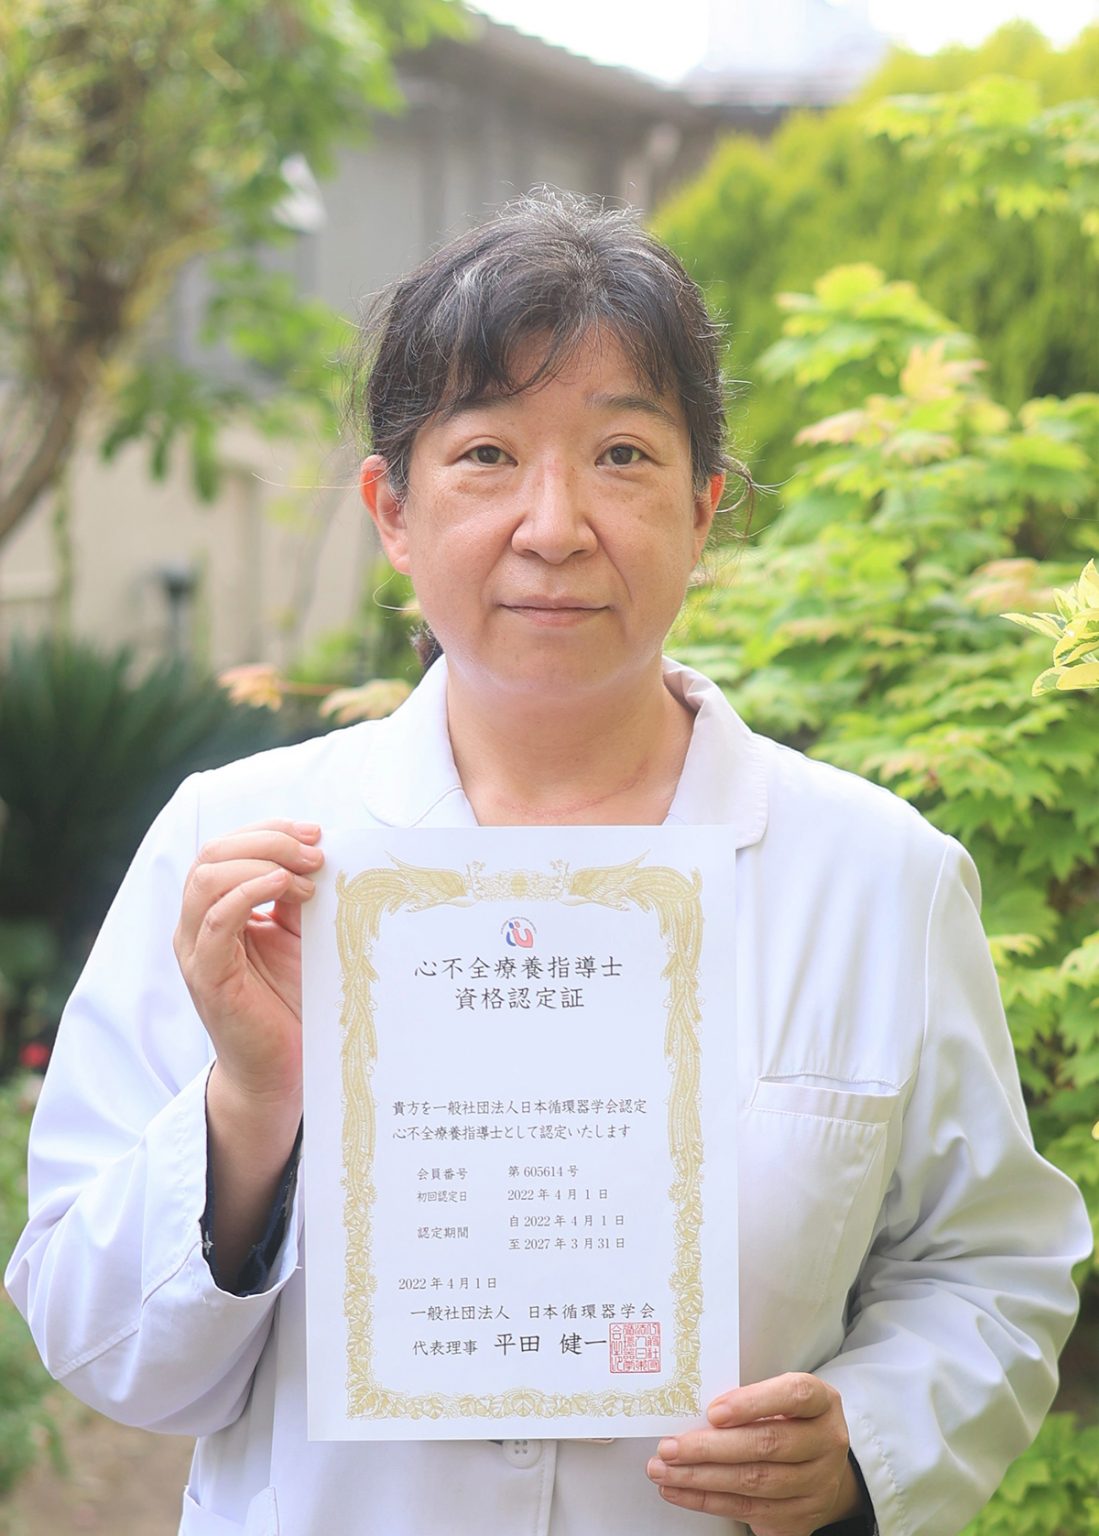 心不全療養指導士
資格認定証
貴方を一般社団法人日本循環器学会認定
心不全療養指導士として認定いたします
会員番号 第 605614 号
初回認定日 2022 年 4 月 1 日
認定期間 自 2022 年 4 月 1 日
至 2027 年 3 月 31 日
2022 年 4 月 1 日
一般社団法人 日本循環器学会
代表理事 平田 健一